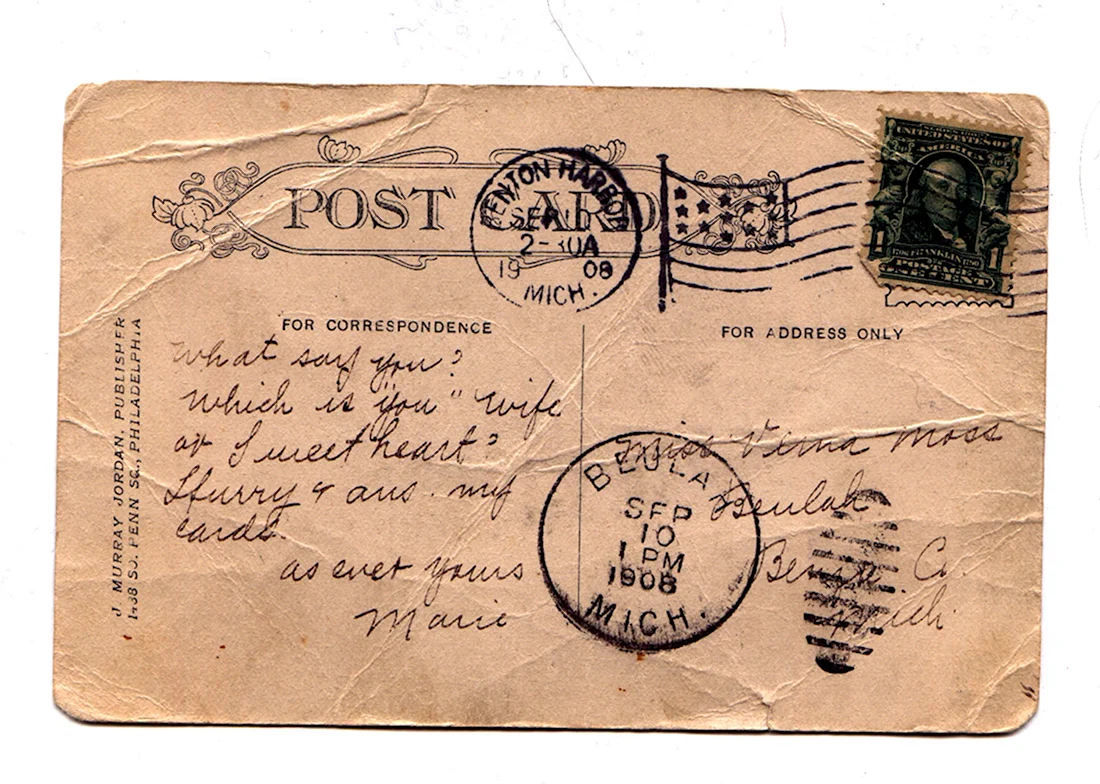 POST CARD
BENTON HARBOR
SEP 10
2-30A
1908
MICH.
UNITED STATES OF
AMERICA
FRANKLIN
1 1
POSTAGE
ONE CENT
FOR CORRESPONDENCE
FOR ADDRESS ONLY
J. MURRAY JORDAN, PUBLISHER
SO. PENN SQ., PHILADELPHIA
What say you?
Which is "you" Wife
or Sweetheart?
Hurry & ans. my
cards.
as ever yours
Marie
Miss Verna Moss
Beulah
Benzie Co.
Mich
BEULA
SEP
10
1 PM
1908
MICH.